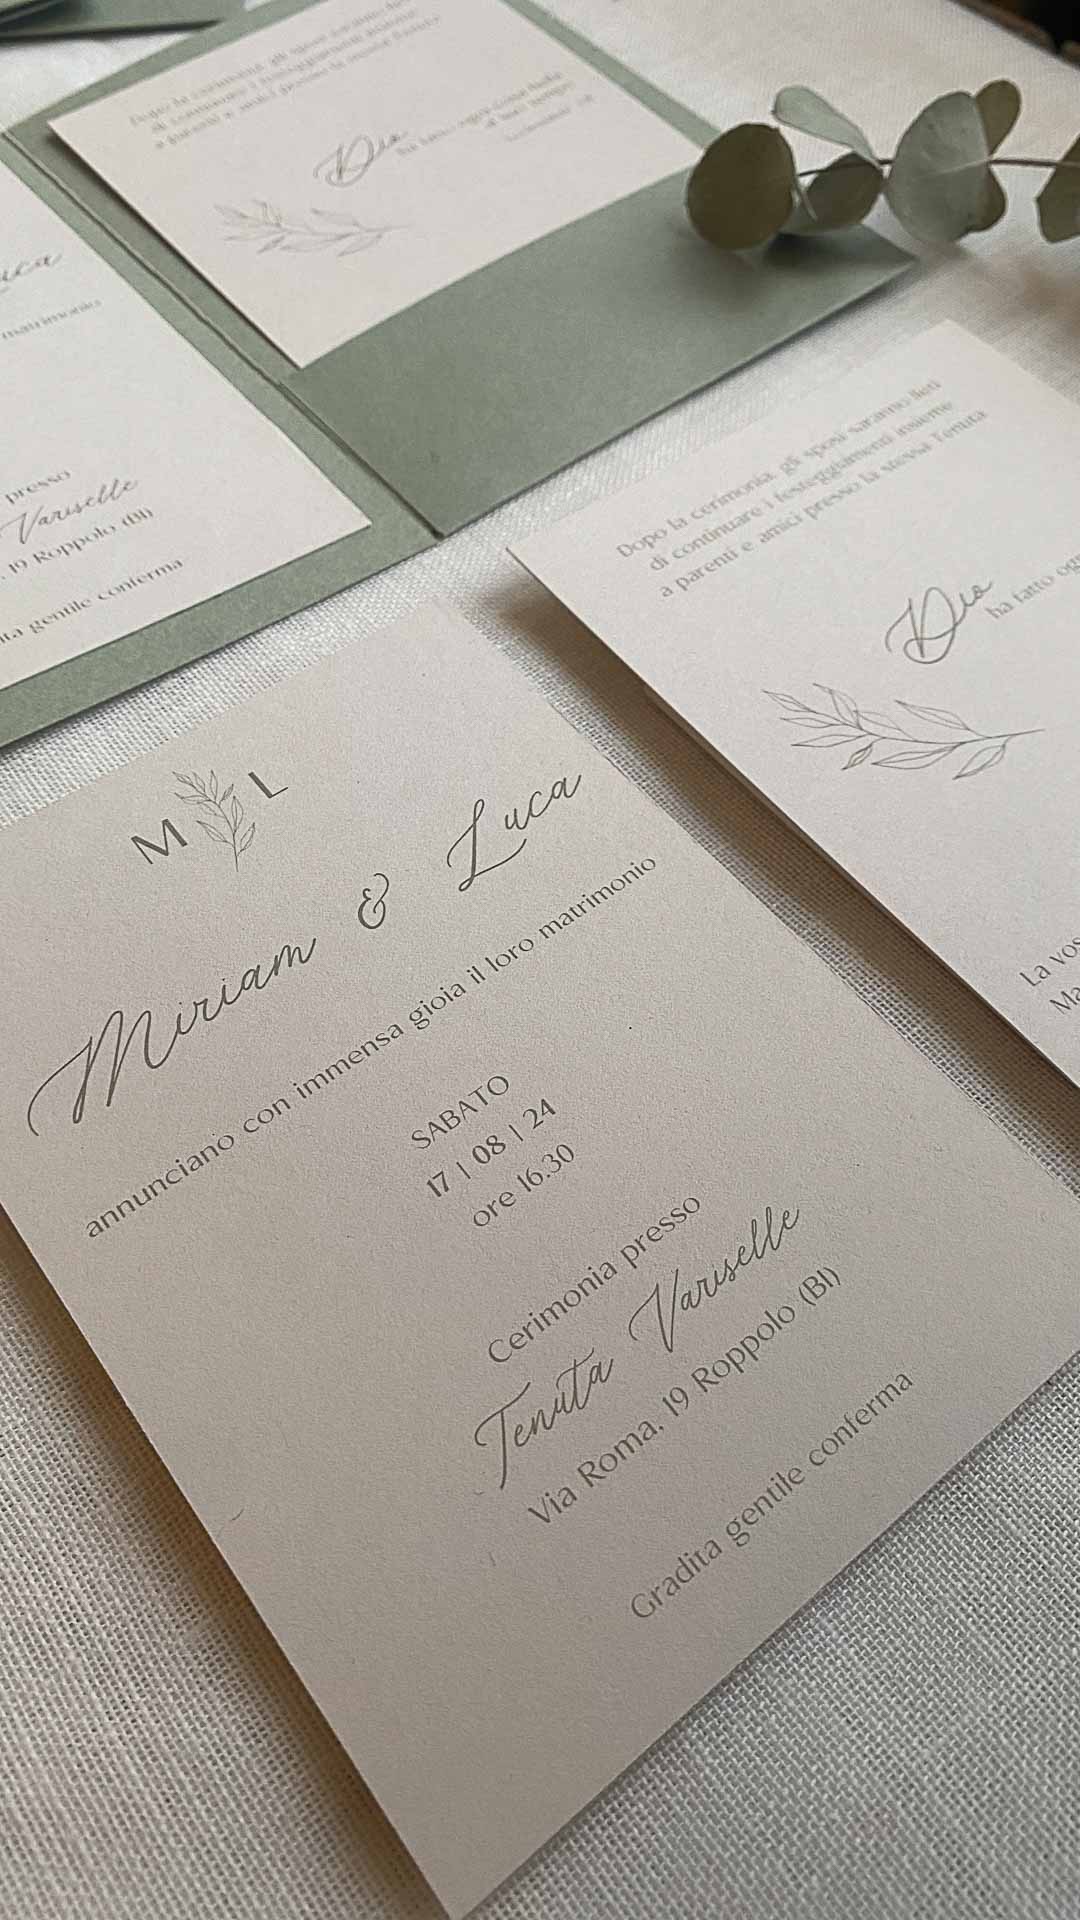 Dopo la cerimonia, gli sposi saranno lieti
di continuare i festeggiamenti insieme
a parenti e amici presso la stessa Tenuta
Dio
ha fatto ogni cosa bella
al suo tempo
Luca
matrimonio
presso
Variselle
, 19 Roppolo (BI)
gentile conferma
Dopo la cerimonia, gli sposi saranno lieti
di continuare i festeggiamenti insieme
a parenti e amici presso la stessa Tenuta
Dio
ha fatto
La
M L
Miriam & Luca
annunciano con immensa gioia il loro matrimonio
SABATO
17 | 08 | 24
ore 16.30
Cerimonia presso
Tenuta Variselle
Via Roma, 19 Roppolo (BI)
Gradita gentile conferma